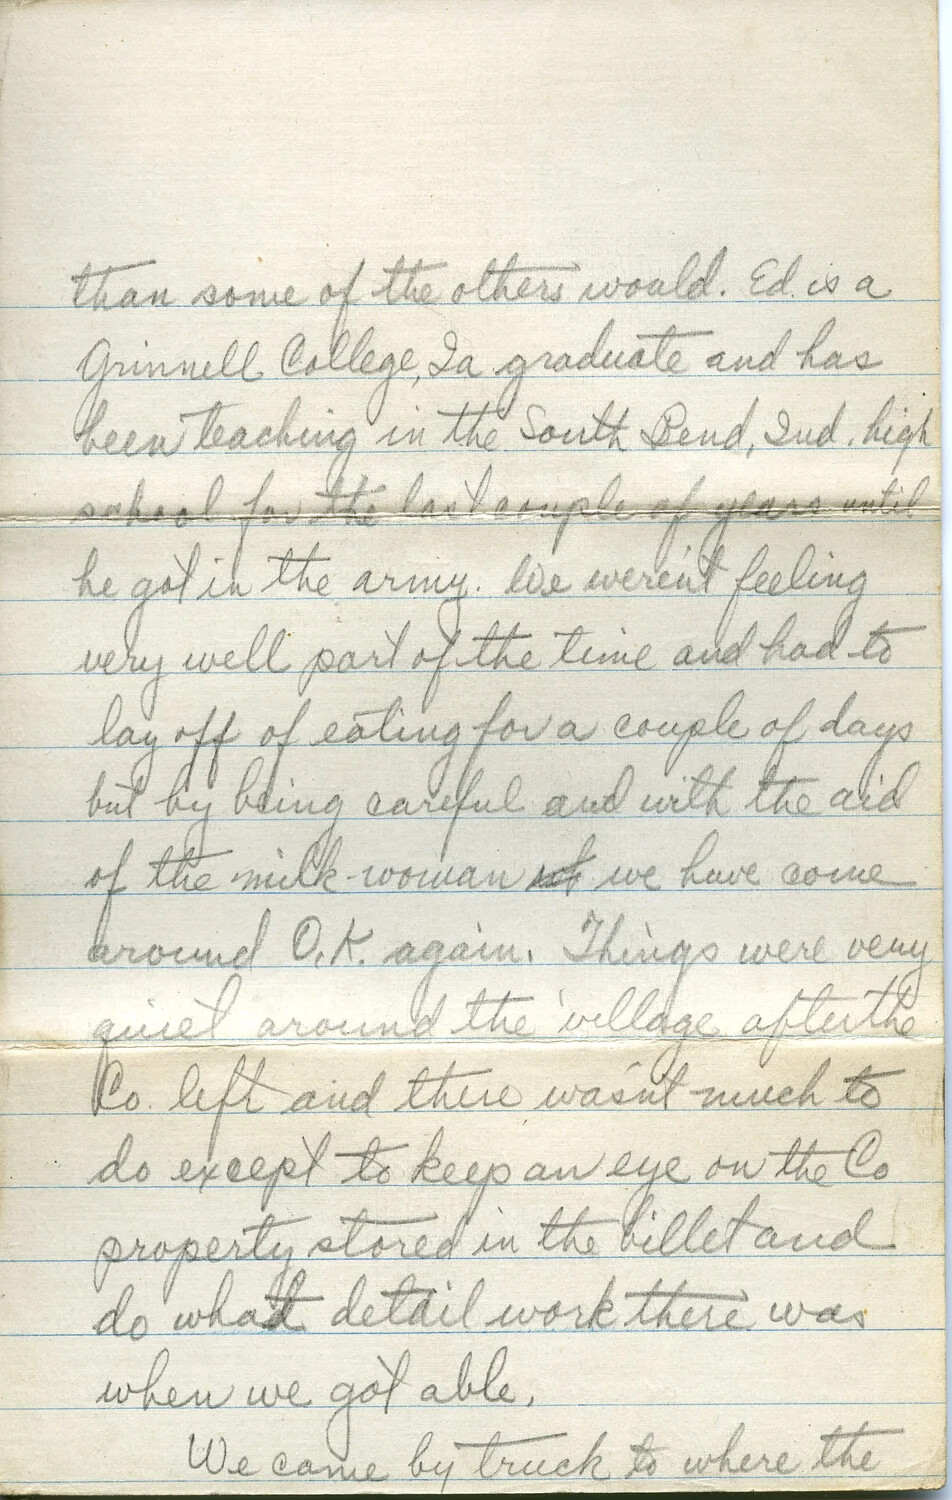 than some of the others would. Ed. is a
Grinnell College, Ia graduate and has
been teaching in the South Bend, Ind. high
school for the last couple of years until
he got in the army. We weren't feeling
very well part of the time and had to
lay off of eating for a couple of days
but by being careful and with the aid
of the milk-woman we have come
around O.K. again. Things were very
quiet around the village after the
Co. left and there wasn't much to
do except to keep an eye on the Co
property stored in the billet and
do what detail work there was
when we got able.
We came by truck to where the